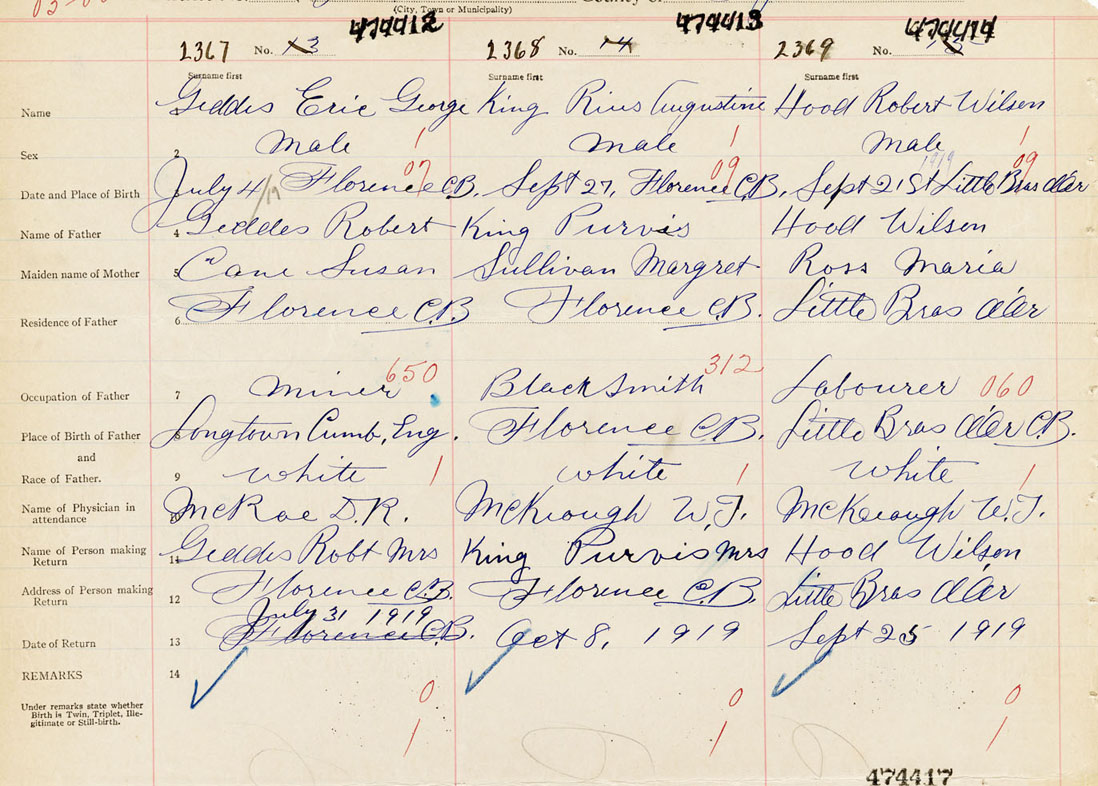 (City, Town or Municipality)
474412 474413 474414
2367 No. 13 2368 No. 14 2369 No.
Surname first Surname first Surname first
Name Geddis Eric George King Rius Augustine Hood Robert Wilson
Sex 2 Male 1 Male 1 Male 1
Date and Place of Birth July 4/19 Florence C.B. 07 Sept 27, Florence C.B. 09 Sept 21st 1919 Little Bras d'Or 09
Name of Father 4 Geddes Robert King Purvis Hood Wilson
Maiden name of Mother 5 Cane Susan Sullivan Margret Ross Maria
Residence of Father 6 Florence C.B. Florence C.B. Little Bras d'Or
Occupation of Father 7 Miner 650 Blacksmith 312 Labourer 060
Place of Birth of Father 8 Longtown Cumb, Eng. Florence C.B. Little Bras d'Or C.B.
and
Race of Father. 9 White 1 White 1 White 1
Name of Physician in
attendance 10 McRae D.R. McKeough W.J. McKeough W.J.
Name of Person making
Return 11 Geddis Robt Mrs King Purvis Mrs Hood Wilson
Address of Person making
Return 12 Florence C.B. Florence C.B. Little Bras d'Or
July 31 1919
Date of Return 13 Florence C.B. Oct 8, 1919 Sept 25 1919
REMARKS 14
0 0 0
Under remarks state whether
Birth is Twin, Triplet, Ille-
gitimate or Still-birth.
1 1 1
474417